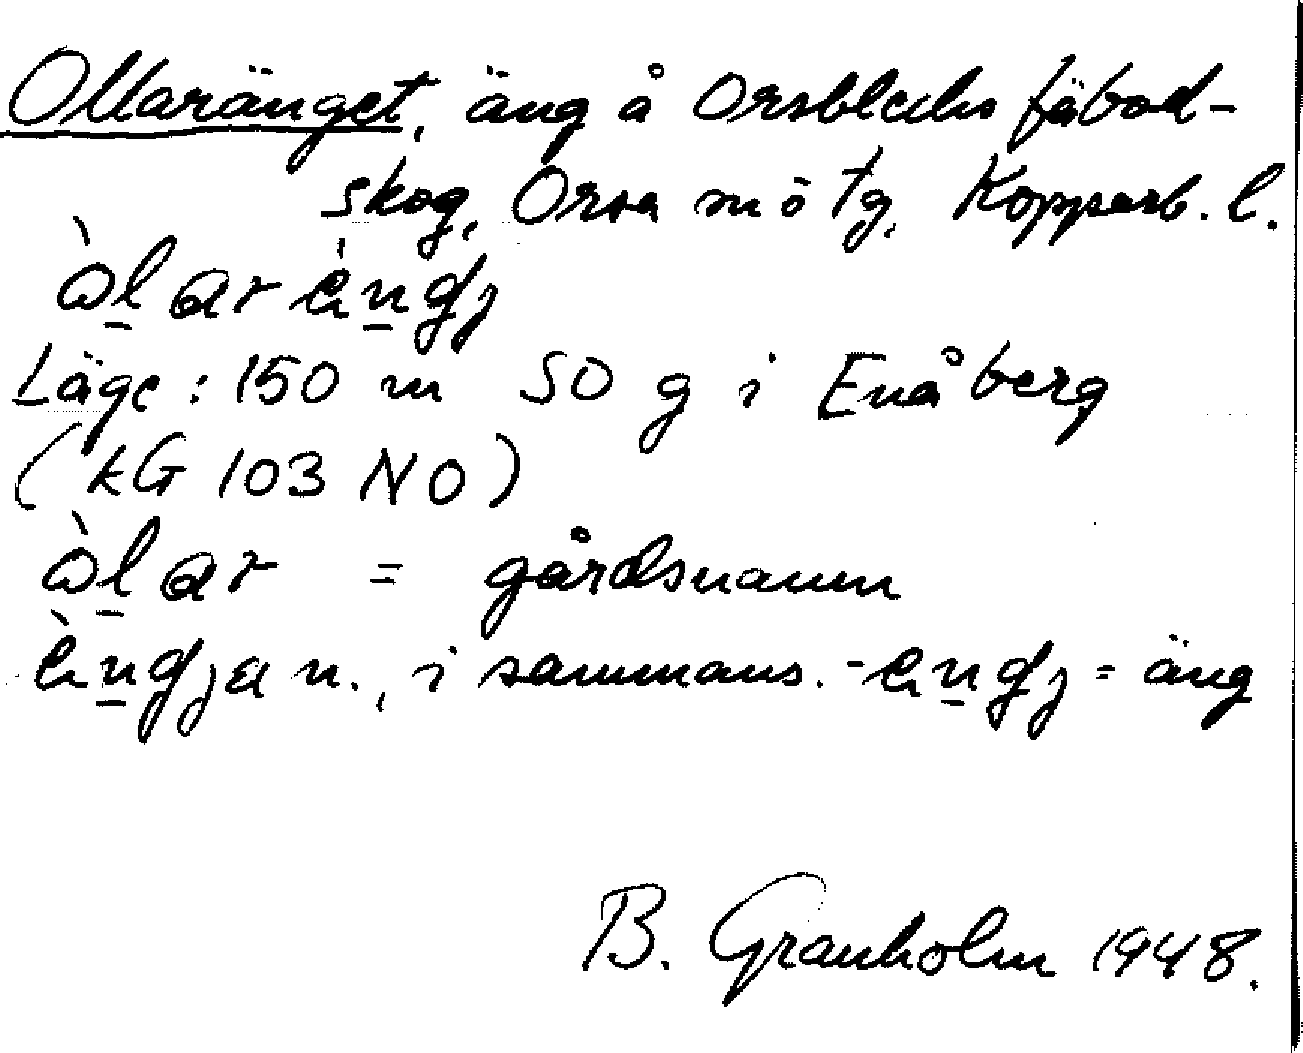 Ollaränget, äng å Orsblecks fäbod-
skog, Orsa mötg, Kopparb. l.
ὼl̠ar ὲn̠gj
Läge: 150 m SO g i Enåberg
(kG 103 NO)
ὼl̠ar = gårdsnamn
ὲn̠gja n., i sammans. -ɛn̠gj = äng
B. Granholm 1948.